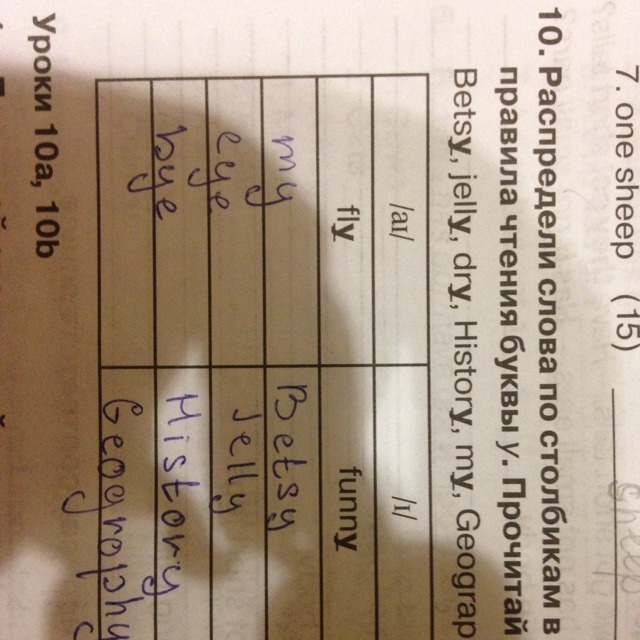 7. one sheep (15)
10. Распредели слова по столбикам в
правила чтения буквы y. Прочитай
Betsy, jelly, dry, History, my, Geograp
/aɪ/ /ɪ/
fly funny
my Betsy
eye Jelly
bye History
Geography
Уроки 10a, 10b